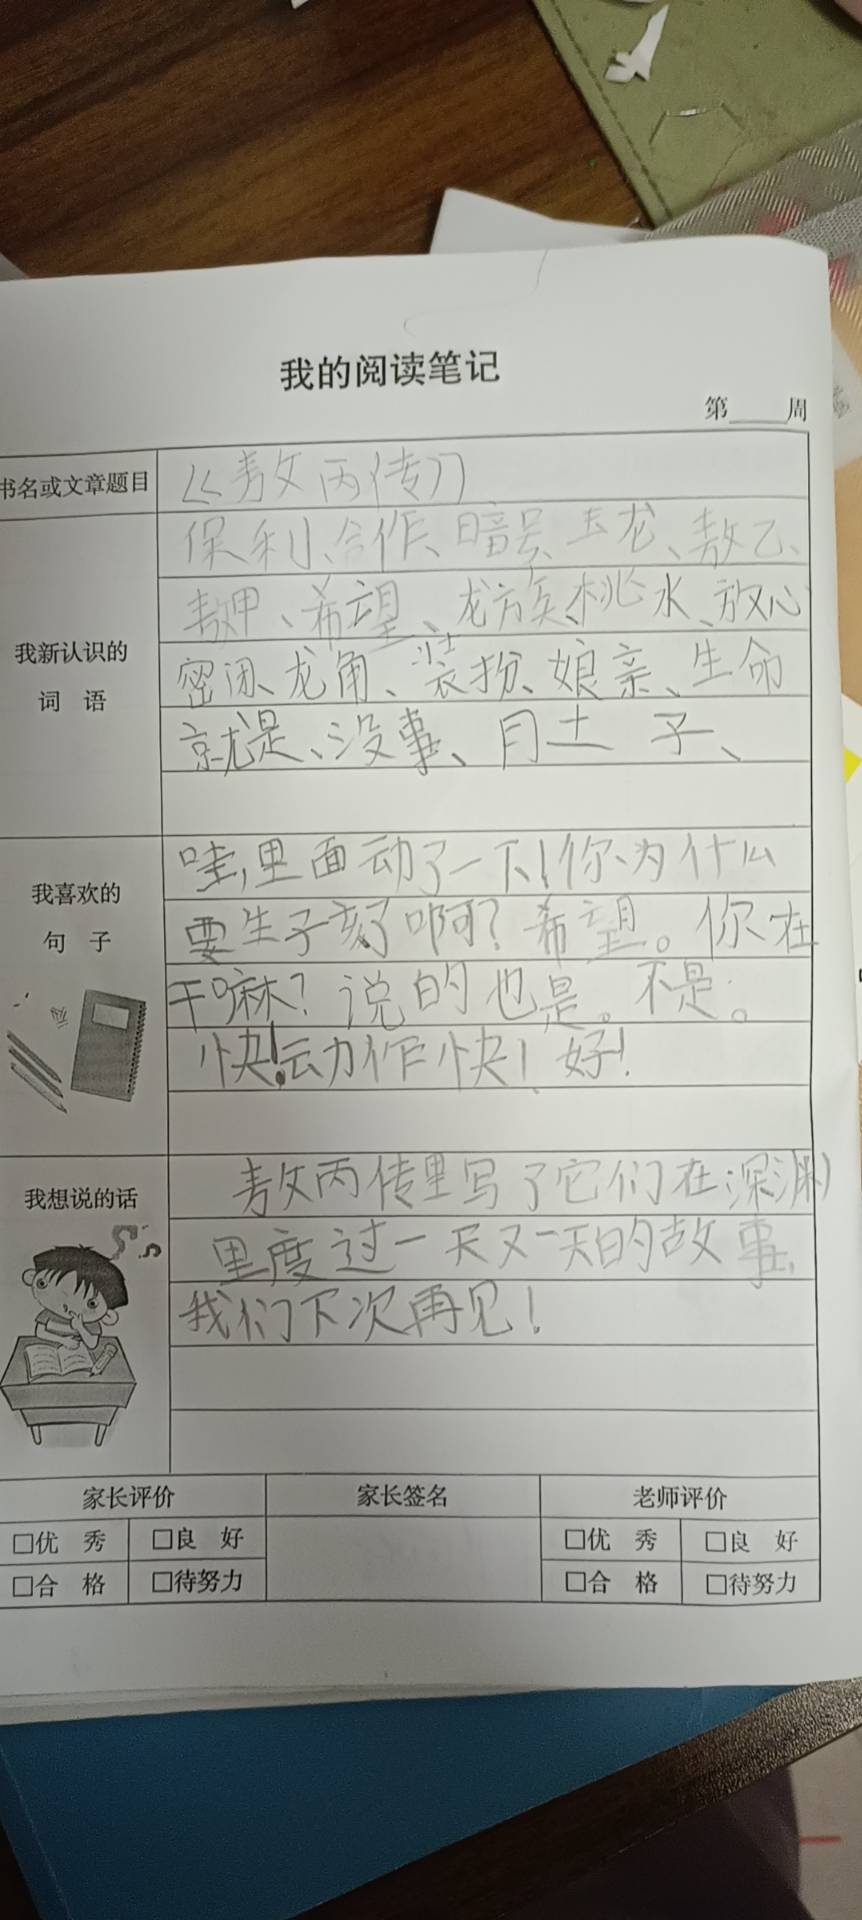 我的阅读笔记
第____周
书名或文章题目
《敖丙传》
我新认识的
词 语
保利、合作、暗号、玉龙、敖乙、
敖甲、希望、龙族、桃水、放心
密闭、龙角、装扮、娘亲、生命
就是、没事、肚子、
我喜欢的
句 子
哇,里面动了一下!你为什么
要生子孩了啊?希望。你在
干嘛?说的也是。不是。
快!动作快!好!
我想说的话
敖丙传里写了它们在深渊
里度过一天又一天的故事,
我们下次再见!
家长评价 家长签名 老师评价
□优 秀 □良 好 □优 秀 □良 好
□合 格 □待努力 □合 格 □待努力